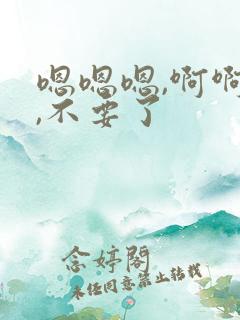 嗯嗯嗯,啊啊
,不要了
念婷阁
未经同意禁止转载